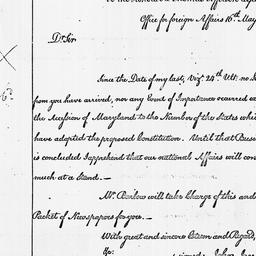 Office for foreign Affairs 16th. May
Dr. Sir
Since the Date of my last, Vizt. 24th. Ult: no
from you have arrived, nor any Event of Importance occurred ex
the Accession of Maryland to the Number of the States whi
have adopted the proposed Constitution. Until that Busi
is concluded I apprehend that our national Affairs will con
much at a Stand.—
Mr. Barlow will take Charge of this and
Packet of Newspapers for you.—
With great and sincere Esteem and Regard,
&c:
signed John